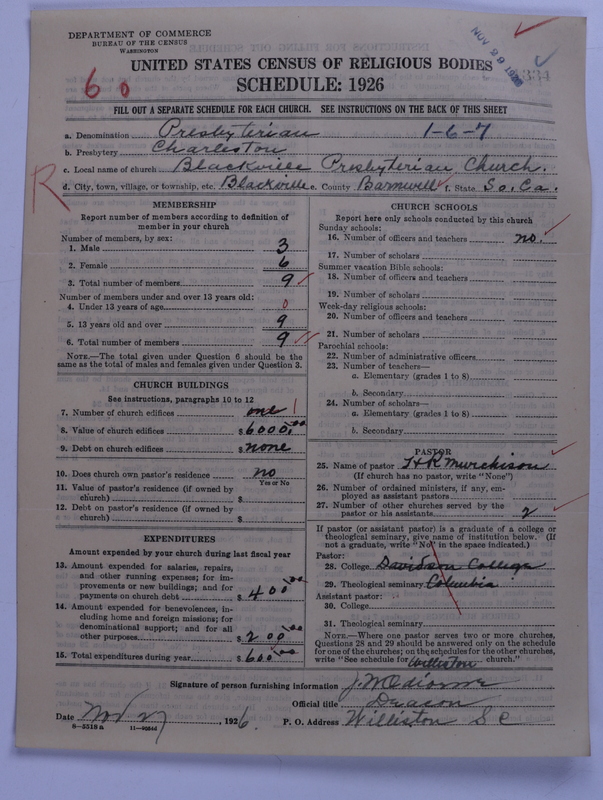 DEPARTMENT OF COMMERCE
BUREAU OF THE CENSUS
WASHINGTON
NOV 29 1926
334
UNITED STATES CENSUS OF RELIGIOUS BODIES
60
SCHEDULE: 1926
FILL OUT A SEPARATE SCHEDULE FOR EACH CHURCH. SEE INSTRUCTIONS ON THE BACK OF THIS SHEET
a. Denomination Presbyterian 1-6-7
b. Presbytery Charleston
c. Local name of church Blackville Presbyterian Church.
R
d. City, town, village, or township, etc. Blackville e. County Barnwell f. State So. Ca.
MEMBERSHIP
Report number of members according to definition of
member in your church
Number of members, by sex:
1. Male 3
2. Female 6
3. Total number of members 9
Number of members under and over 13 years old:
4. Under 13 years of age 0
5. 13 years old and over 9
6. Total number of members 9
NOTE.—The total given under Question 6 should be the
same as the total of males and females given under Question 3.
CHURCH BUILDINGS
See instructions, paragraphs 10 to 12
7. Number of church edifices one 1
8. Value of church edifices $6000.00
9. Debt on church edifices $none
10. Does church own pastor's residence no
Yes or No
11. Value of pastor's residence (if owned by
church) $
12. Debt on pastor's residence (if owned by
church) $
EXPENDITURES
Amount expended by your church during last fiscal year
13. Amount expended for salaries, repairs,
and other running expenses; for im-
provements or new buildings; and for
payments on church debt $400.00
14. Amount expended for benevolences, in-
cluding home and foreign missions; for
denominational support; and for all
other purposes $200.00
15. Total expenditures during year $600.00
CHURCH SCHOOLS
Report here only schools conducted by this church
Sunday schools:
16. Number of officers and teachers no.
17. Number of scholars
Summer vacation Bible schools:
18. Number of officers and teachers
19. Number of scholars
Week-day religious schools:
20. Number of officers and teachers
21. Number of scholars
Parochial schools:
22. Number of administrative officers
23. Number of teachers—
a. Elementary (grades 1 to 8)
b. Secondary
24. Number of scholars—
a. Elementary (grades 1 to 8)
b. Secondary
PASTOR
25. Name of pastor H R Murchison
(If church has no pastor, write "None")
26. Number of ordained ministers, if any, em-
ployed as assistant pastors
27. Number of other churches served by the
pastor or his assistants 2
If pastor (or assistant pastor) is a graduate of a college or
theological seminary, give name of institution below. (If
not a graduate, write "No" in the space indicated.)
Pastor:
28. College Davidson College
29. Theological seminary Columbia
Assistant pastor:
30. College
31. Theological seminary
NOTE.—Where one pastor serves two or more churches,
Questions 28 and 29 should be answered only on the schedule
for one of the churches; on the schedules for the other churches,
write "See schedule for Williston church."
Signature of person furnishing information J. M Odiorne
Official title Deacon
Date Nov 27, 1926. P. O. Address Williston S C
8—5518a 11—96644